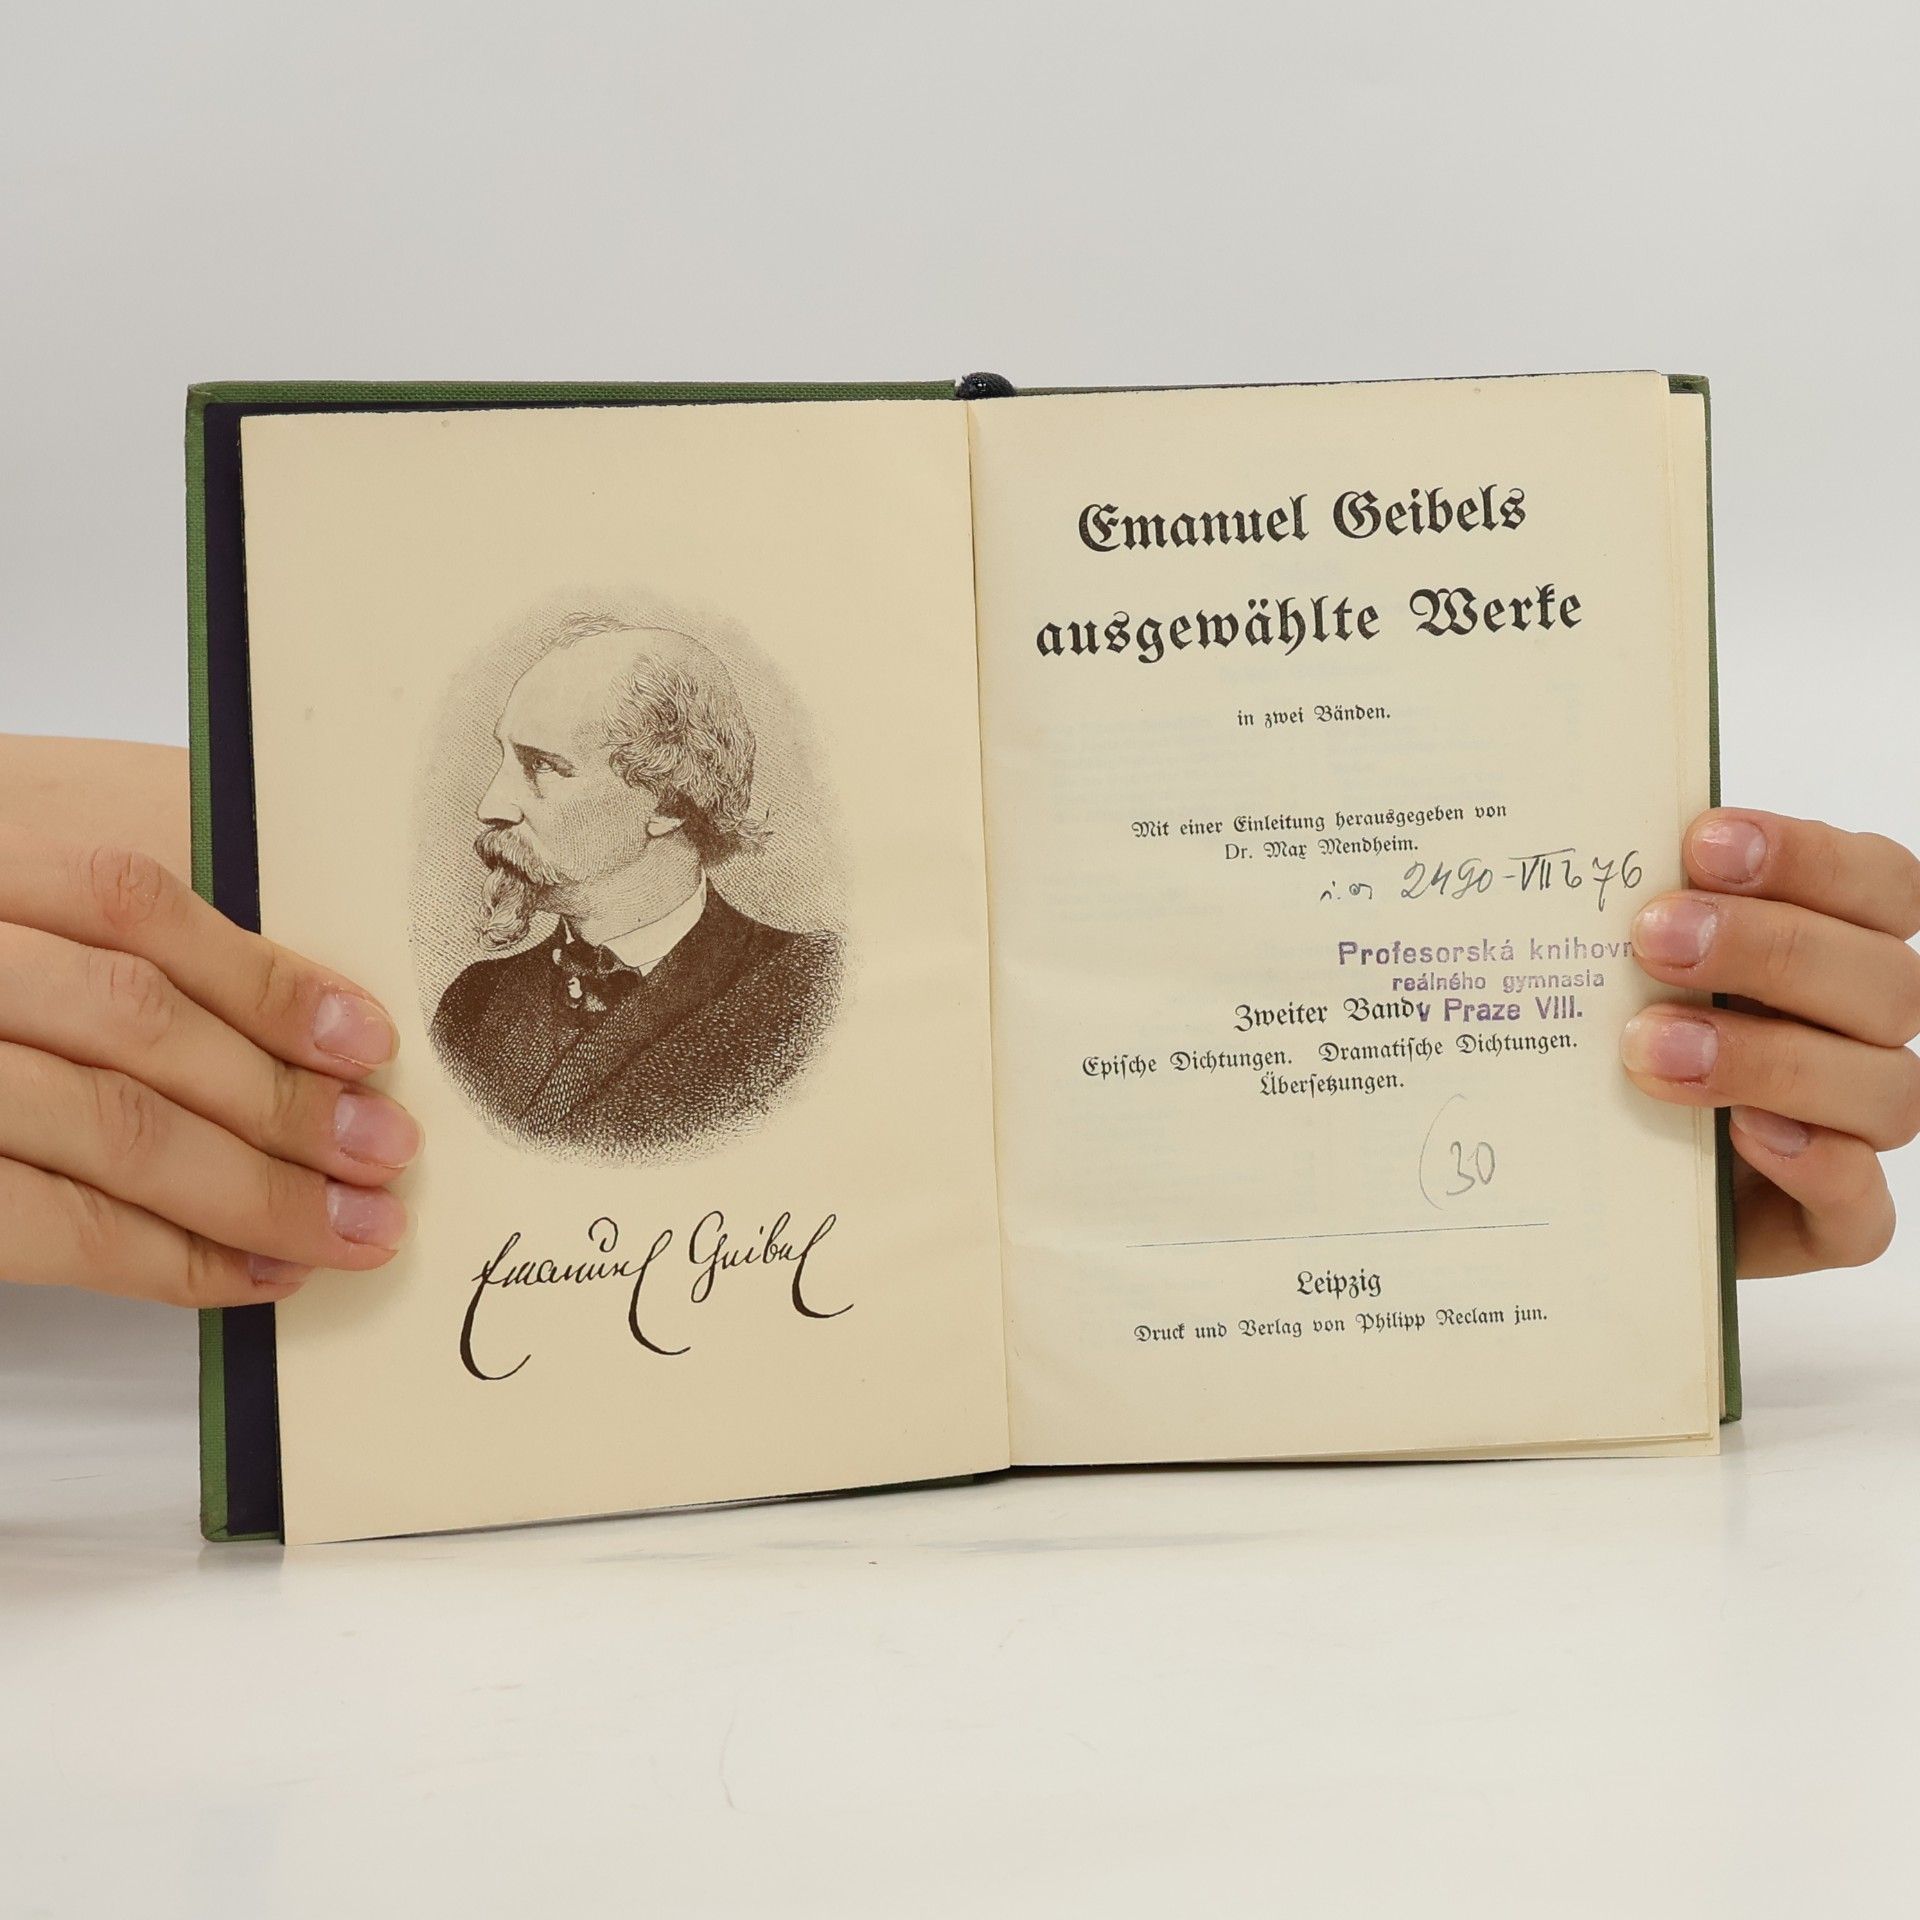 Emanuel Geibel
Emanuel Geibels
ausgewählte Werke
in zwei Bänden.
Mit einer Einleitung herausgegeben von
Dr. Max Mendheim.
2490-VII b 76
Profesorská
reálného gymnasia
v Praze VIII.
Zweiter Band
Epische Dichtungen. Dramatische Dichtungen.
Übersetzungen.
(30
Leipzig
Druck und Verlag von Philipp Reclam jun.